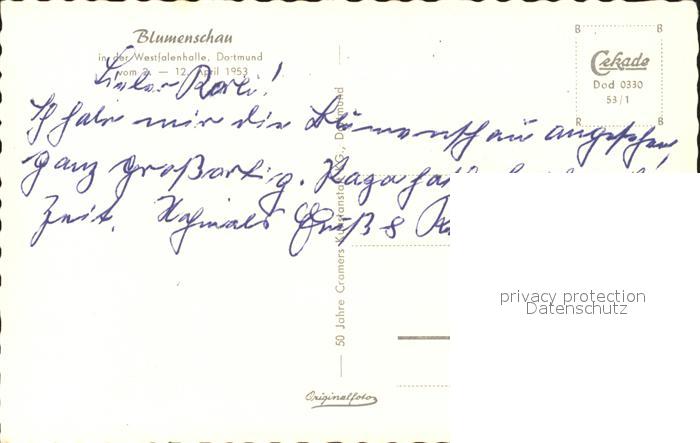 Blumenschau
in der Westfalenhalle, Dortmund
vom 2. — 12. April 1953
Lieber
Ich habe mir die Blumenschau angesehen,
ganz großartig.
Zeit. Nochmals Gruß &
50 Jahre Cramers Kunstanstalt KG., Dortmund
Originalfoto
B B
Cekade
Dod 0330
53/1
R R
privacy protection
Datenschutz